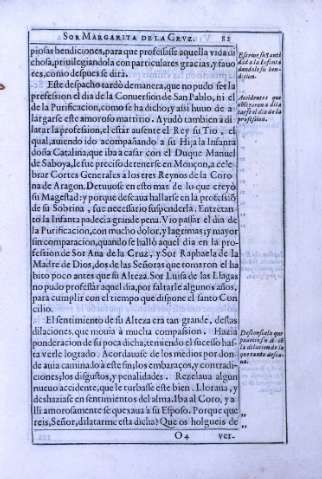 SOR MARGARITA DE LA CRVZ. 82
piosas bendiciones, para que professasse aquella vida di-
chosa, priuilegiandola con particulares gracias, y fauo
res, como despues se dirà.
Este despacho tardò demanera, que no pudo ser la
profession el dia de la Conuersion de San Pablo, ni el
de la Purificacion, como se ha dicho; y assi huuo de a-
largarse este amoroso martirio. Ayudò tambien à di
latar la profession, el estar ausente el Rey su Tio, el
qual, auiendo ido acompañando a su Hija la Infanta
doña Catalina, que iba a casar con el Duque Manuel
de Saboya, le fue preciso detenerse en Monçon, a cele-
brar Cortes Generales a los tres Reynos de la Coro
na de Aragon. Detuuose en esto mas de lo que creyò
su Magestad: y porque desseaua hallarse en la professiõ
de su Sobrina, fue necessario suspenderla. Entretan
to la Infanta padecia grande pena. Vio passar el dia de
la Purificacion, con mucho dolor, y lagrimas; y mayor
sin comparacion, quando se hallò aquel dia en la pro-
fession de Sor Ana de la Cruz, y Sor Raphaela de la
Madre de Dios, dos de las Señoras que tomaron el ha
bito poco antes que su Alteza. Sor Luisa de las Llagas
no pudo professar aquel dia, por faltarle algunos años,
para cumplir con el tiempo que dispone el santo Con
cilio.
El sentimiento de su Alteza era tan grande, destas
dilaciones, que mouia à mucha compassion. Hazia
ponderacion de su poca dicha, temiendo el sucesso has-
ta verle logrado. Acordauase de los medios por don-
de auia caminado à este fin; los embaraços, y contradi-
ciones; los disgustos, y penalidades. Rezelaua algun
nuevo accidente, que le turbasse este bien. Lloraua, y
deshaziase en sentimientos del alma. Iba al Coro, y a-
lli amorosamente se quexaua à su Esposo. Porque que
reis, Señor, dilatarme esta dicha? Que os holgueis de
O 4 ver-
Accidentes que
profession.